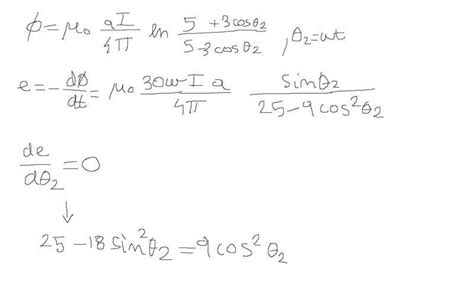 ϕ = μ₀ aI/4π ln (5 + 3cosθ₂)/(5 - 3cosθ₂) , θ₂ = ωt
e = - dϕ/dt = μ₀ 30ωI a/4π sinθ₂/(25 - 9cos²θ₂)
de/dθ₂ = 0
↓
25 - 18 sin²θ₂ = 9 cos² θ₂